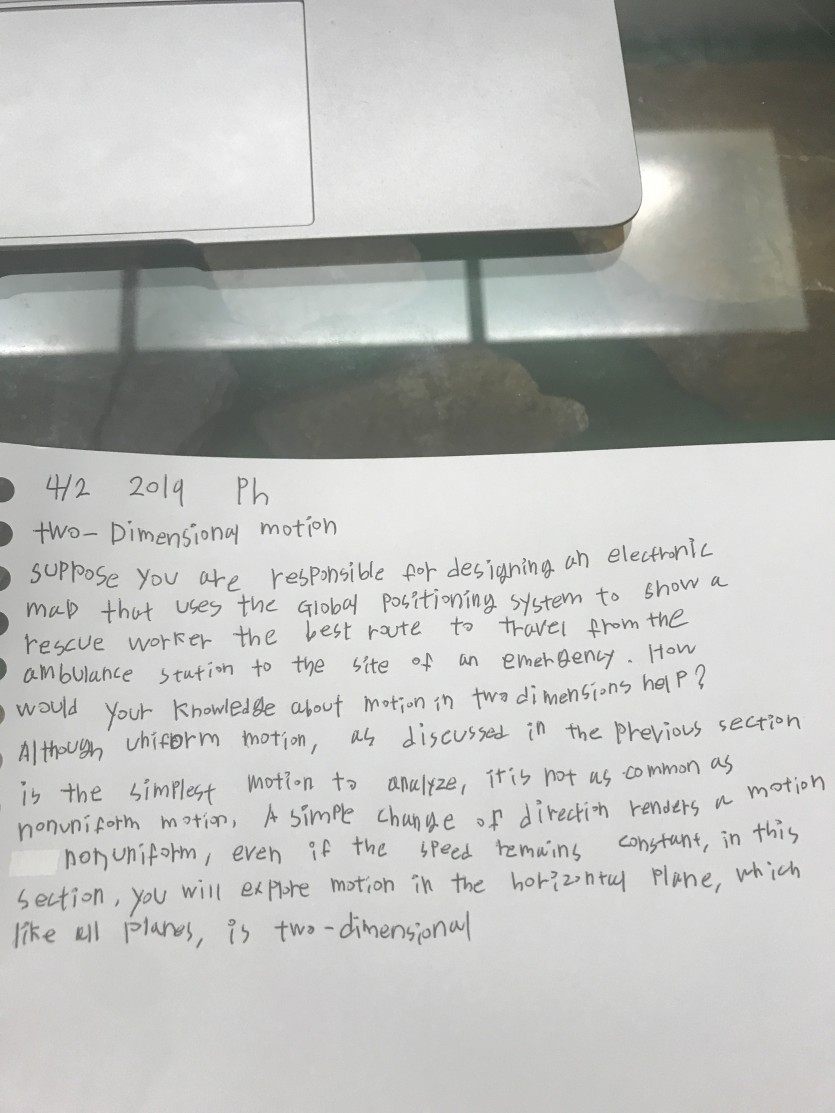 4/2 2019 Ph
two-Dimensional motion
suppose you are responsible for designing an electronic
map that uses the Global positioning system to show a
rescue worker the best route to travel from the
ambulance station to the site of an emergency. How
would your knowledge about motion in two dimensions help?
Although uniform motion, as discussed in the previous section
is the simplest motion to analyze, it is not as common as
nonuniform motion, A simple change of direction renders a motion
nonuniform, even if the speed remains constant, in this
section, you will explore motion in the horizontal plane, which
like all planes, is two-dimensional